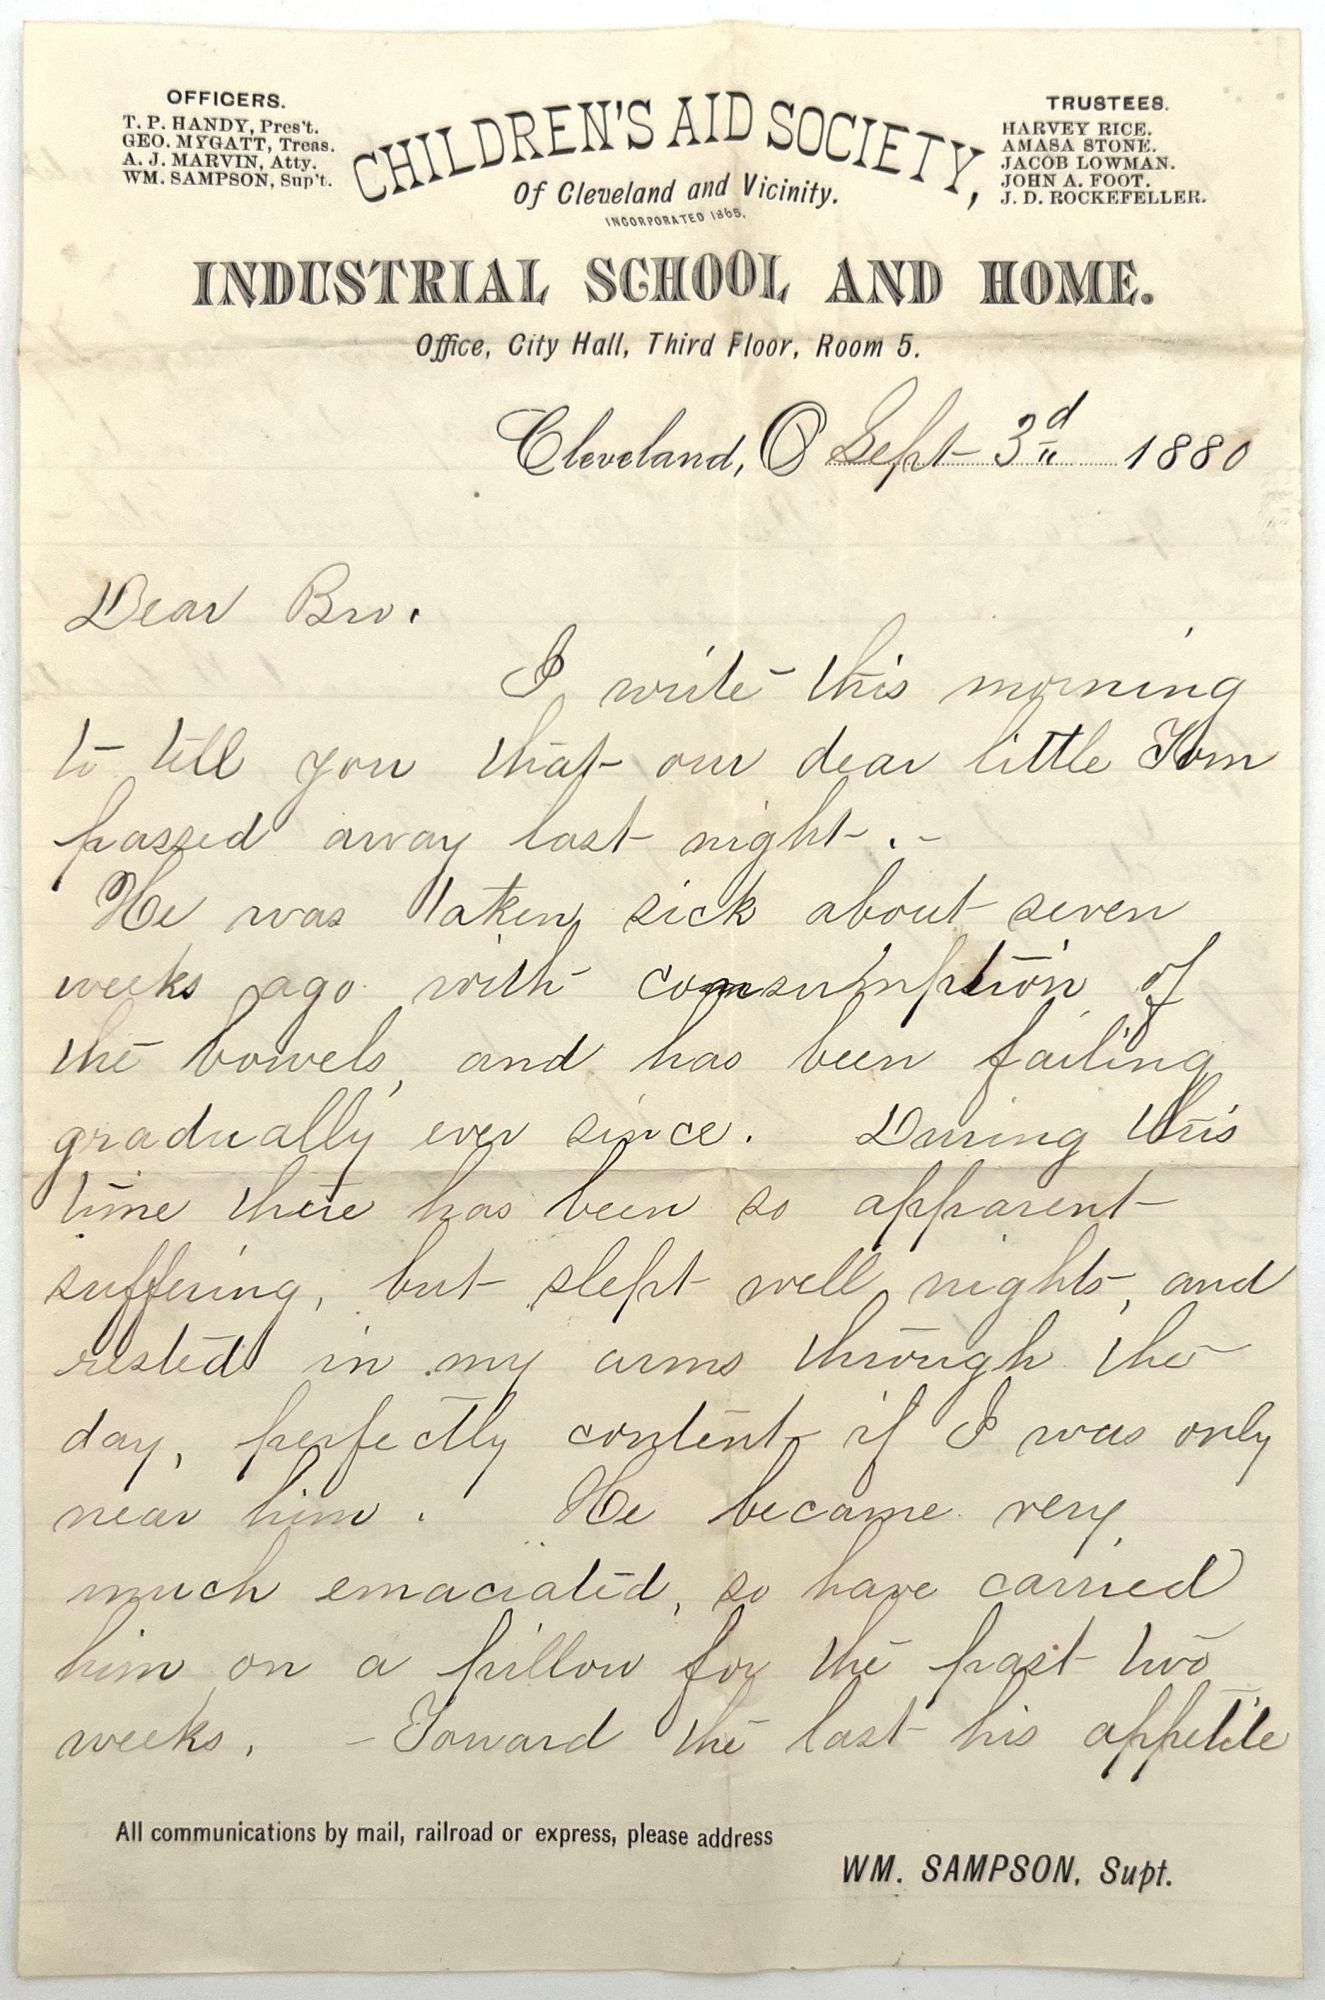 OFFICERS.
T. P. HANDY, Pres't.
GEO. MYGATT, Treas.
A. J. MARVIN, Atty.
WM. SAMPSON, Sup't.
CHILDREN'S AID SOCIETY,
Of Cleveland and Vicinity.
INCORPORATED 1865.
TRUSTEES.
HARVEY RICE.
AMASA STONE.
JACOB LOWMAN.
JOHN A. FOOT.
J. D. ROCKEFELLER.
INDUSTRIAL SCHOOL AND HOME.
Office, City Hall, Third Floor, Room 5.
Cleveland, O Sept 3d 1880
Dear Bro.
I write this morning
to tell you that our dear little Tom
passed away last night. -
He was taken sick about seven
weeks ago with consumption of
the bowels, and has been failing
gradually ever since. During this
time there has been so apparent
suffering, but slept well nights, and
rested in my arms through the
day, perfectly content if I was only
near him. He became very
much emaciated, so have carried
him on a pillow for the past two
weeks. - Toward the last his appetite
All communications by mail, railroad or express, please address
WM. SAMPSON, Supt.